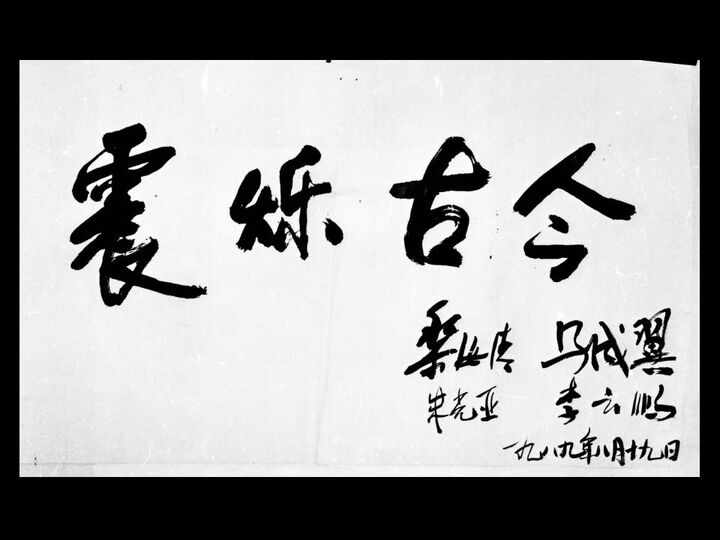 震烁古今
黎汝清 马成翼
朱光亚 李云鹏
一九八九年八月十九日